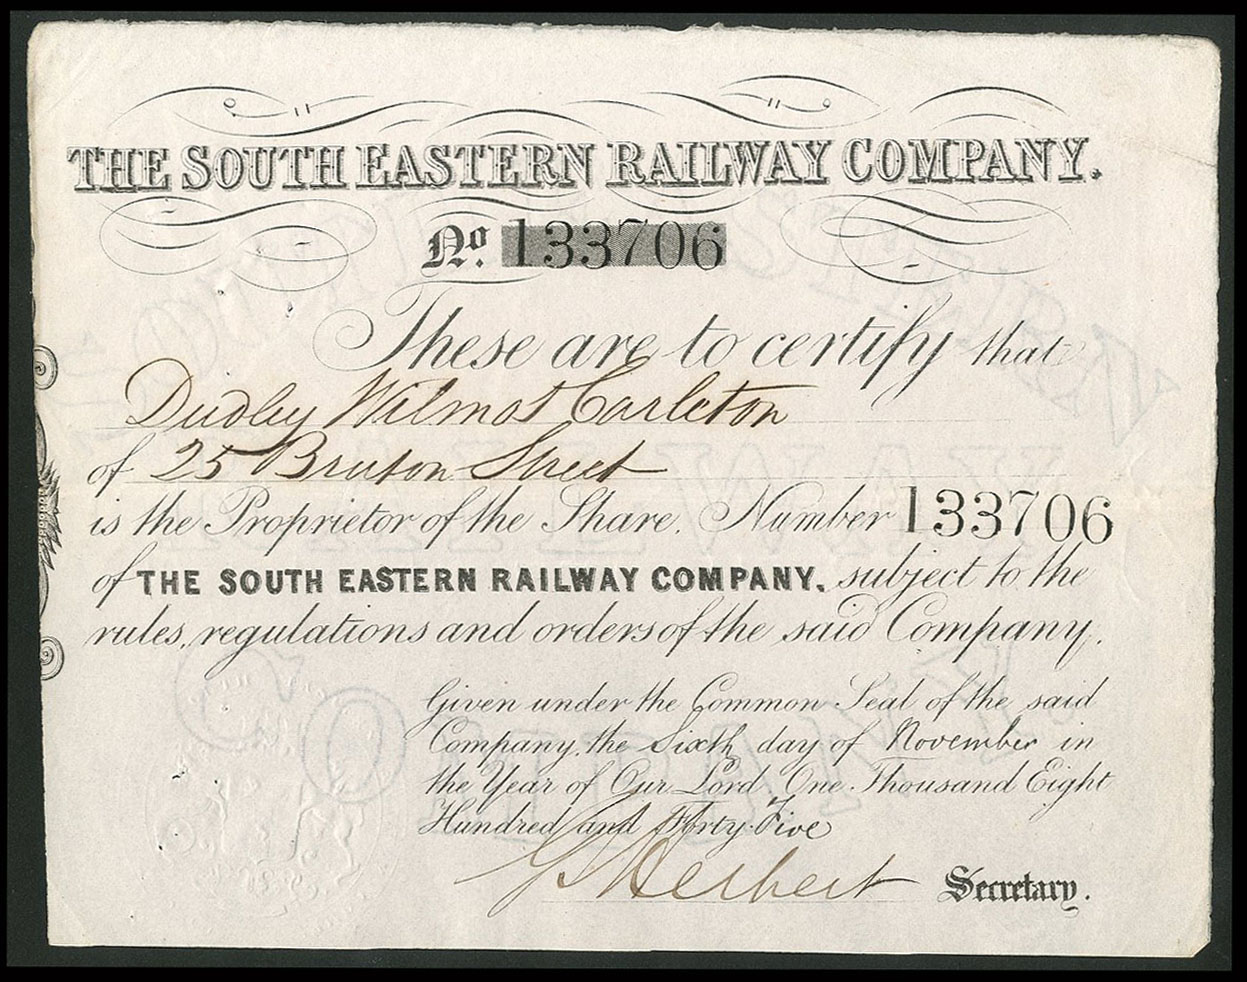 THE SOUTH EASTERN RAILWAY COMPANY.
No. 133706
These are to certify that
Dudley Wilmot Carleton
of 25 Bruton Street
is the Proprietor of the Share. Number 133706
of THE SOUTH EASTERN RAILWAY COMPANY. subject to the
rules, regulations and orders of the said Company.
Given under the Common Seal of the said
Company, the Sixth day of November in
the Year of Our Lord One Thousand Eight
Hundred and Forty-Five
G S Herbert Secretary.